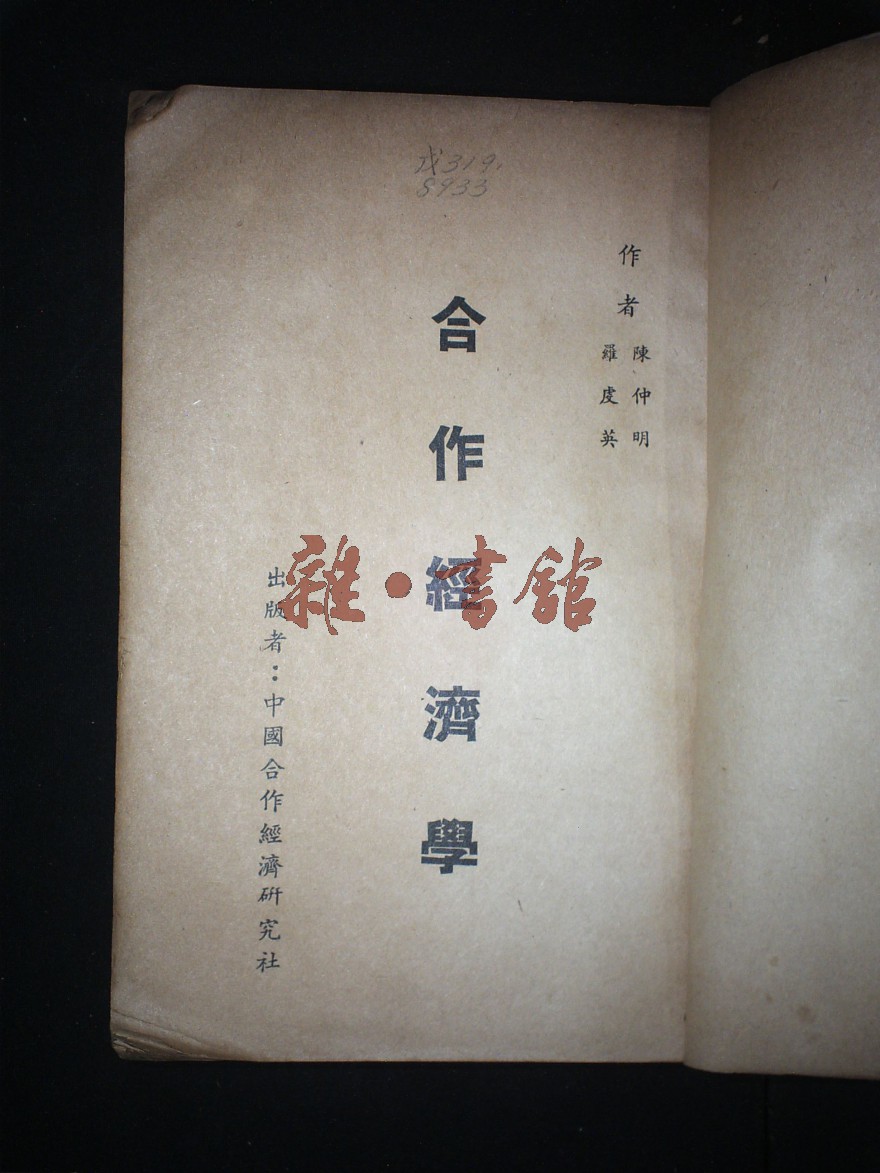 戊319.
8933
作者
陳仲明
羅虔英
合作經濟學
出版者：中國合作經濟研究社
雜·書館